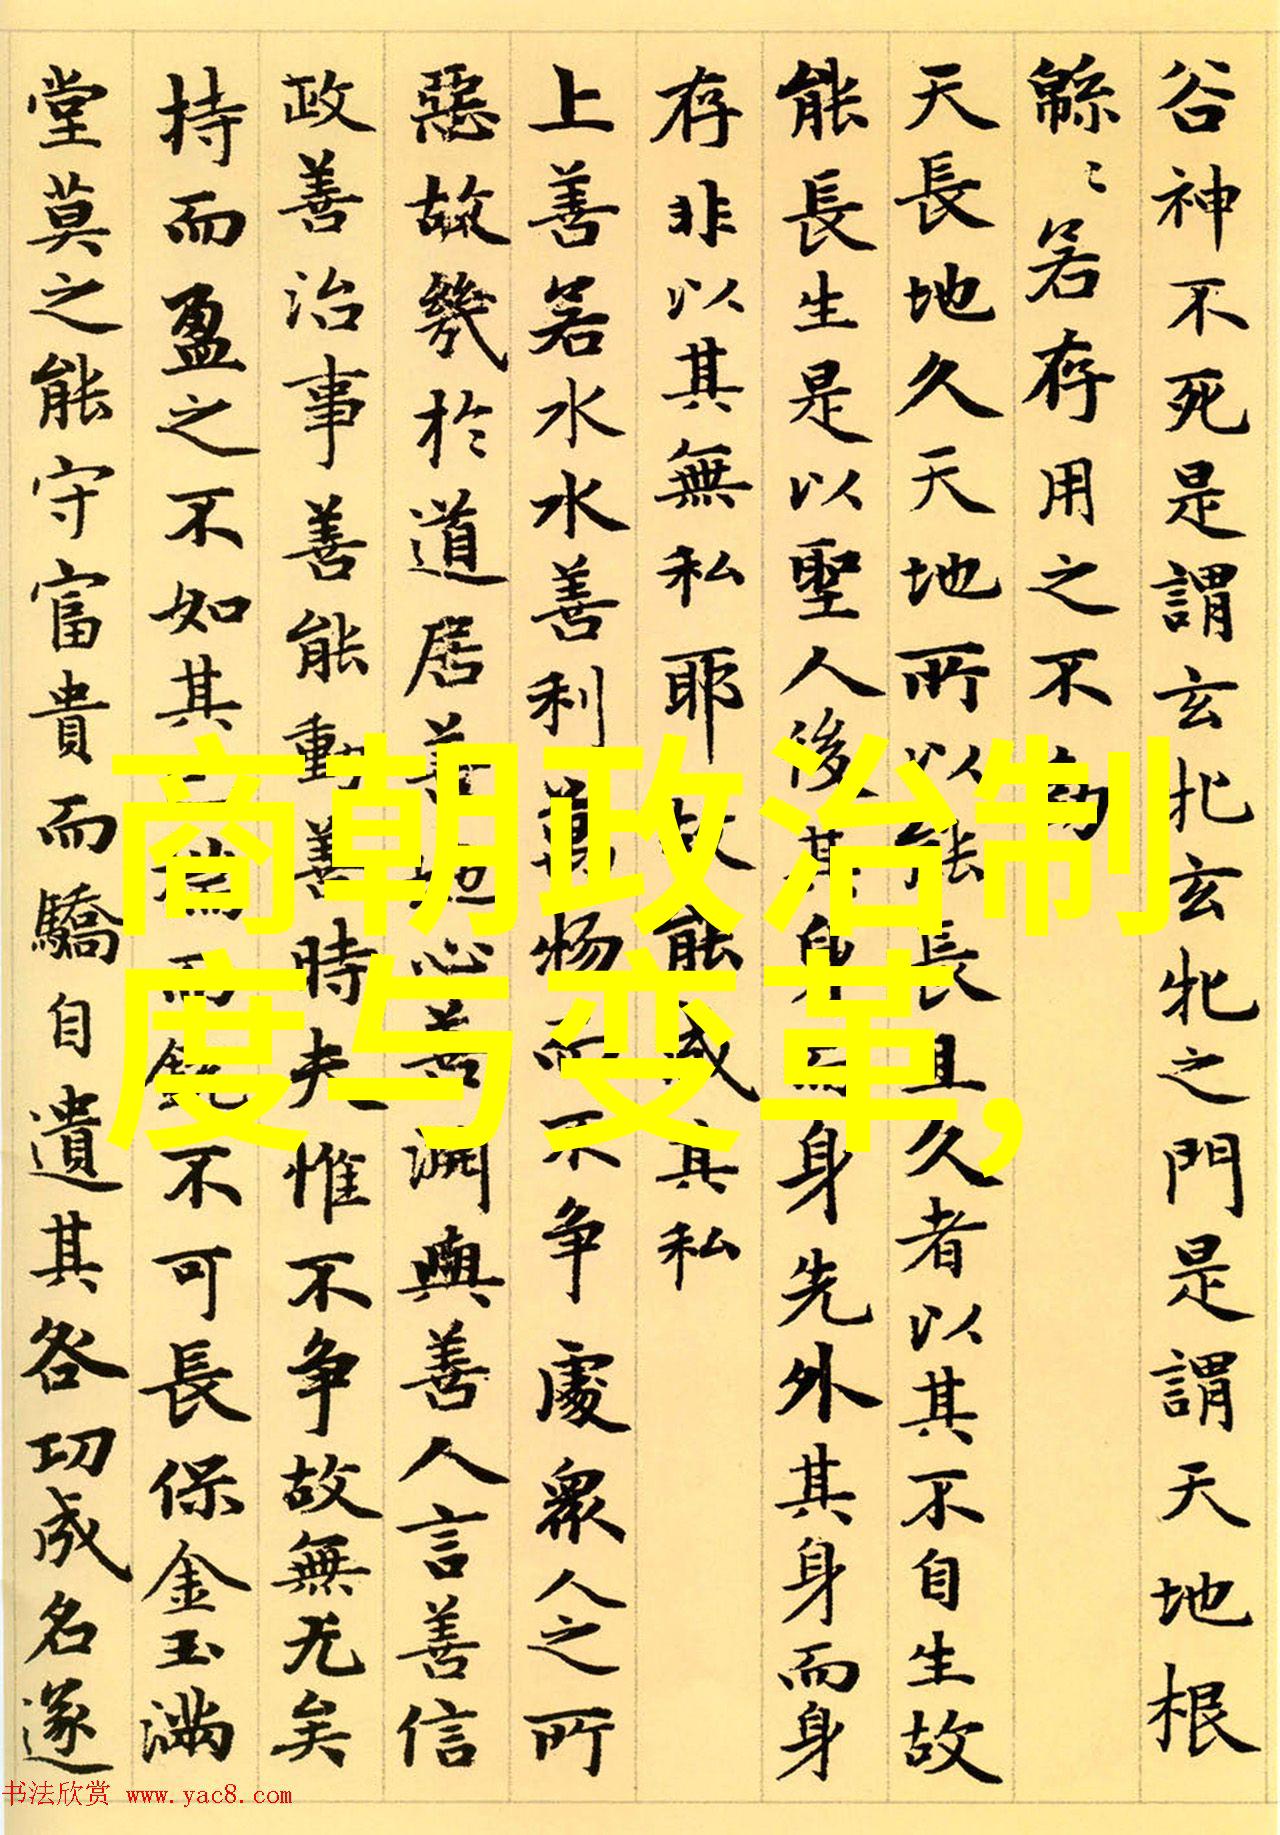 谷神不死是謂玄牝玄牝之門是謂天地根
緜〻若存用之不
天長地久天地所以能長且久者以其不自生故
能長生是以聖人後其身而身先外其身而身
存非以其無私耶故能成其私
上善若水水善利萬物而不争處衆人之所
惡故幾於道居善地心善渊與善人言善信
政善治事善能動善時夫惟不争故無尤矣
持而盈之不如其已揣而銳不可長保金玉滿
堂莫之能守富貴而驕自遺其咎功成名遂
商朝政治制
度与变革,
书法欣赏 www.yac8.com